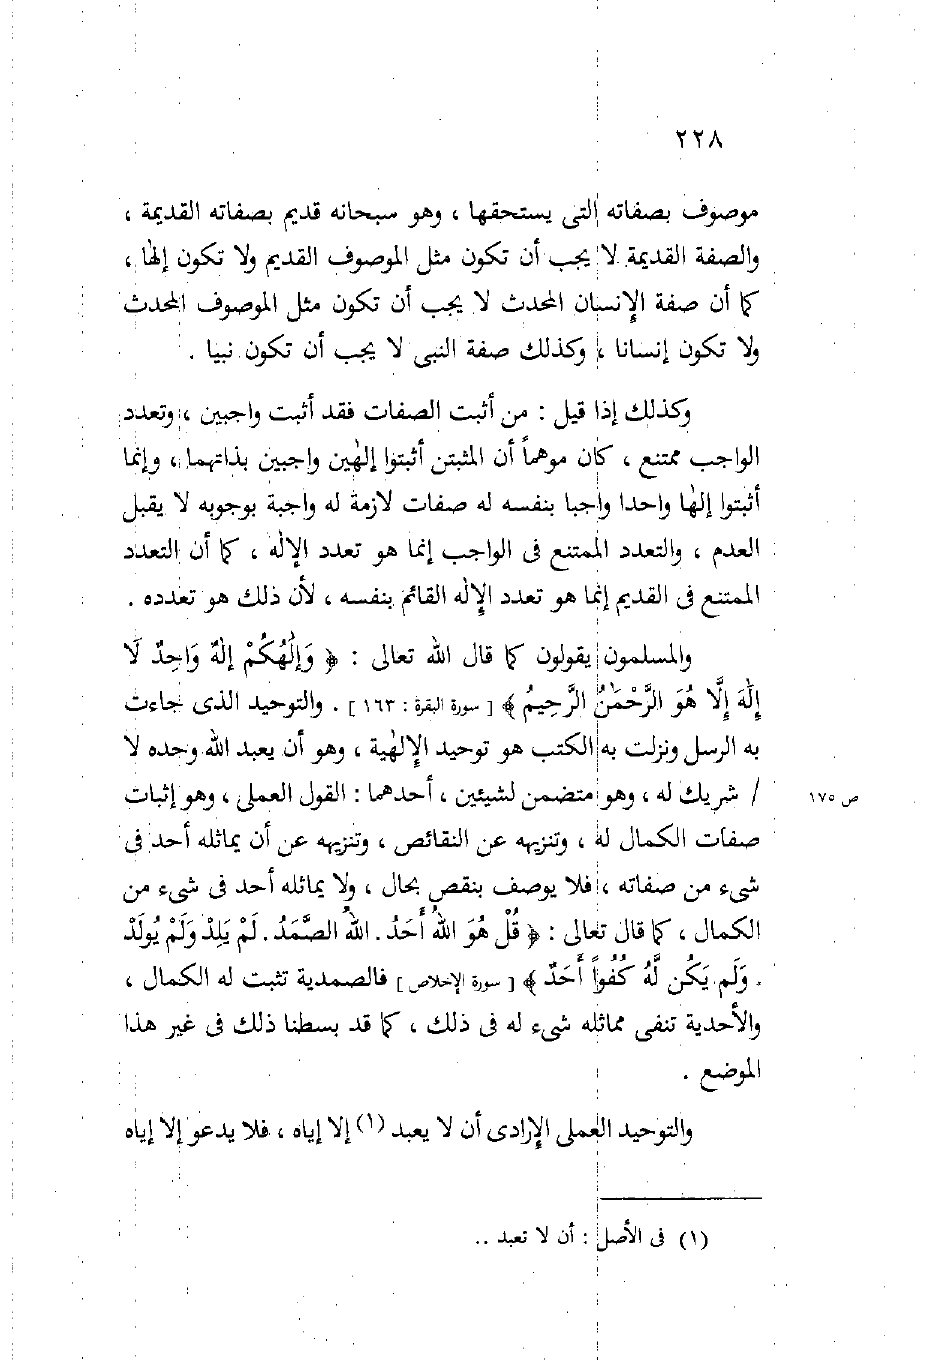 ٢٢٨
موصوف بصفاته التى يستحقها ، وهو سبحانه قديم بصفاته القديمة ،
والصفة القديمة لا يجب أن تكون مثل الموصوف القديم ولا تكون إلها ،
كما أن صفة الإنسان المحدث لا يجب أن تكون مثل الموصوف المحدث
ولا تكون إنسانا ، وكذلك صفة النبى لا يجب أن تكون نبيا .
وكذلك إذا قيل : من أثبت الصفات فقد أثبت واجبين ، وتعدد
الواجب ممتنع ، كان موهماً أن المثبتن أثبتوا إلهين واجبين بذاتهما ، وإنما
أثبتوا إلها واحدا واجبا بنفسه له صفات لازمة له واجبة بوجوبه لا يقبل
العدم ، والتعدد الممتنع فى الواجب إنما هو تعدد الإله ، كما أن التعدد
الممتنع فى القديم إنما هو تعدد الإله القائم بنفسه ، لأن ذلك هو تعدده .
والمسلمون يقولون كما قال الله تعالى : ﴿ وَإِلَٰهُكُمْ إِلَٰهٌ وَاحِدٌ لَا
إِلَٰهَ إِلَّا هُوَ الرَّحْمَٰنُ الرَّحِيمُ ﴾ [ سورة البقرة : ١٦٣ ] . والتوحيد الذى جاءت
به الرسل ونزلت به الكتب هو توحيد الإلهية ، وهو أن يعبد الله وحده لا
/ شريك له ، وهو متضمن لشيئين ، أحدهما : القول العملى ، وهو إثبات
ص ١٧٥
صفات الكمال له ، وتنزيهه عن النقائص ، وتنزيهه عن أن يماثله أحد فى
شىء من صفاته ، فلا يوصف بنقص بحال ، ولا يماثله أحد فى شىء من
الكمال ، كما قال تعالى : ﴿ قُلْ هُوَ اللهُ أَحَدٌ . اللهُ الصَّمَدُ . لَمْ يَلِدْ وَلَمْ يُولَدْ
. وَلَم يَكُن لَّهُ كُفُواً أَحَدٌ ﴾ [ سورة الإخلاص ] فالصمدية تثبت له الكمال ،
والأحدية تنفى مماثله شىء له فى ذلك ، كما قد بسطنا ذلك فى غير هذا
الموضع .
والتوحيد العملى الإرادى أن لا يعبد (١) إلا إياه ، فلا يدعو إلا إياه
(١) فى الأصل : أن لا تعبد ..